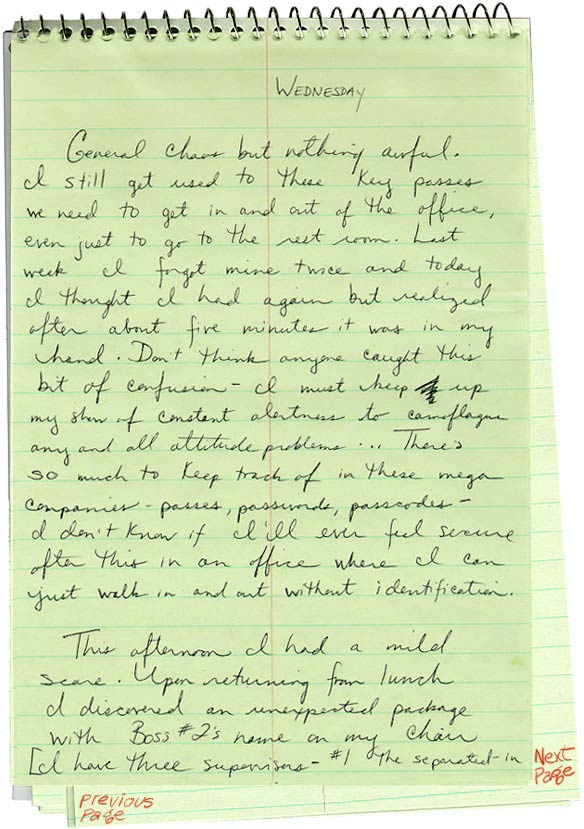 WEDNESDAY
General chaos but nothing awful.
I still get used to these key passes
we need to get in and out of the office,
even just to go to the rest room. Last
week I forgot mine twice and today
I thought I had again but realized
after about five minutes it was in my
hand. Don't think anyone caught this
bit of confusion - I must keep up
my show of constant alertness to camoflague
any and all attitude problems... There's
so much to keep track of in these mega
companies - passes, passwords, passcodes -
I don't know if I'll ever feel secure
after this in an office where I can
just walk in and out without identification.
This afternoon I had a mild
scare. Upon returning from lunch
I discovered an unexpected package
with Boss #2's name on my chair
[I have three supervisors - #1 the separated-in
Next
Page
Previous
Page